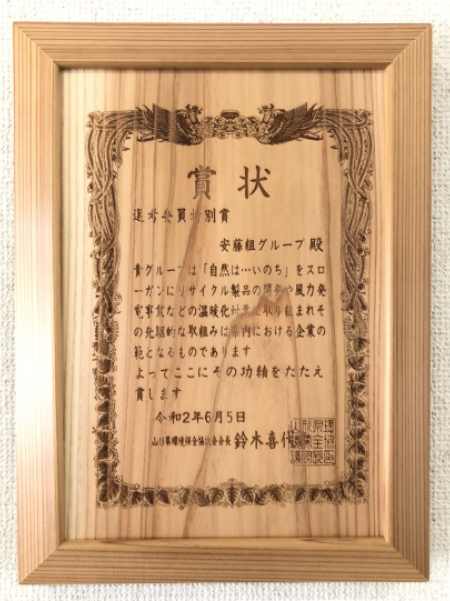 賞状
選考委員特別賞
安藤組グループ 殿
貴グループは「自然は…いのち」をスロ
ーガンにリサイクル製品の開発や風力発
電事業などの温暖化対策に取り組まれそ
の先駆的な取組みは県内における企業の
範となるものであります
よってここにその功績をたたえ
賞します
令和2年6月5日
山形県環境保全協議会会長 鈴木喜代